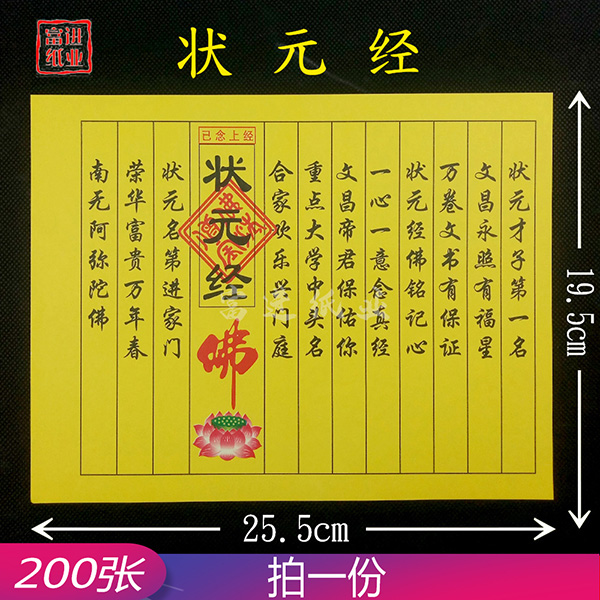 富进
纸业
状元经
状元才子第一名
文昌永照有福星
万卷文书有保证
状元经佛铭记心
一心一意念真经
文昌帝君保佑你
重点大学中头名
合家欢乐兴门庭
已念上经
状元经
佛
状元名第进家门
荣华富贵万年春
南无阿弥陀佛
富进纸业
19.5cm
25.5cm
200张
拍一份